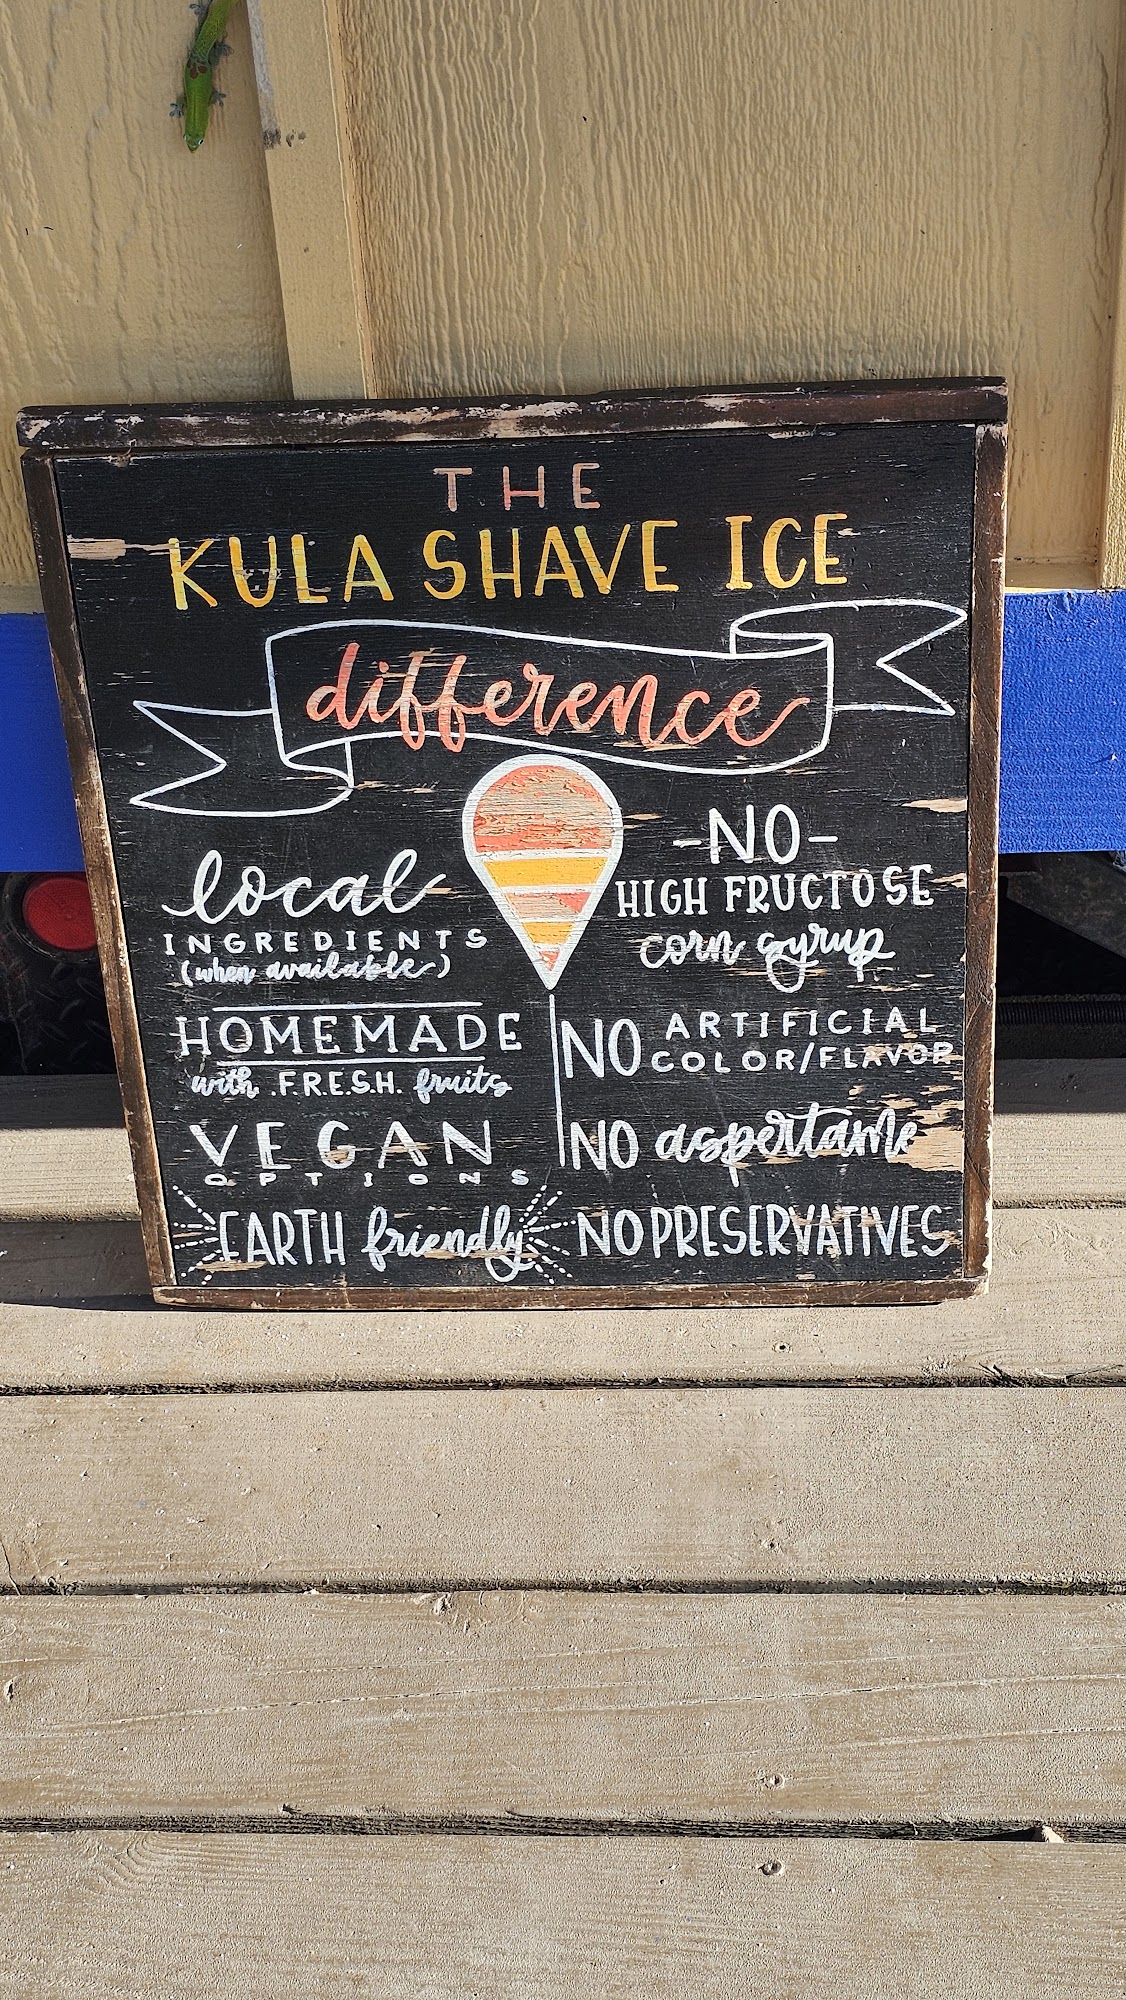 THE
KULA SHAVE ICE
difference
local
INGREDIENTS
(when available)
HOMEMADE
with .F.R.E.S.H. fruits
VEGAN
OPTIONS
EARTH friendly
-NO-
HIGH FRUCTOSE
corn syrup
NO ARTIFICIAL
COLOR/FLAVOR
NO aspertame
NO PRESERVATIVES